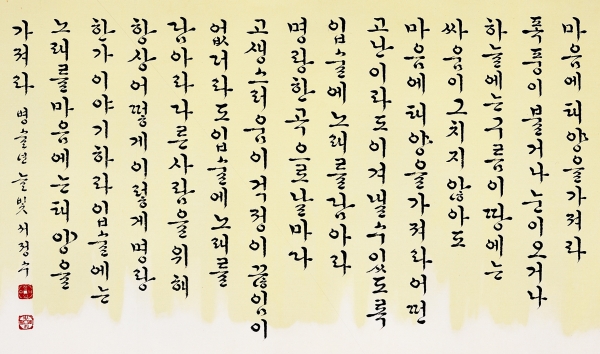 마음에 태양을 가져라
폭풍이 불거나 눈이 오거나
하늘에는 구름이 땅에는
싸움이 그치지 않아도
마음에 태양을 가져라 어떤
고난이라도 이겨낼 수 있도록
입술에 노래를 담아라
명랑한 곡으로 날마다
고생스러움이 걱정이 끊임이
없더라도 입술에 노래를
담아라 다른 사람을 위해
항상 어떻게 이렇게 명랑
한가 이야기하라 입술에는
노래를 마음에는 태양을
가져라 병술년 늘빛